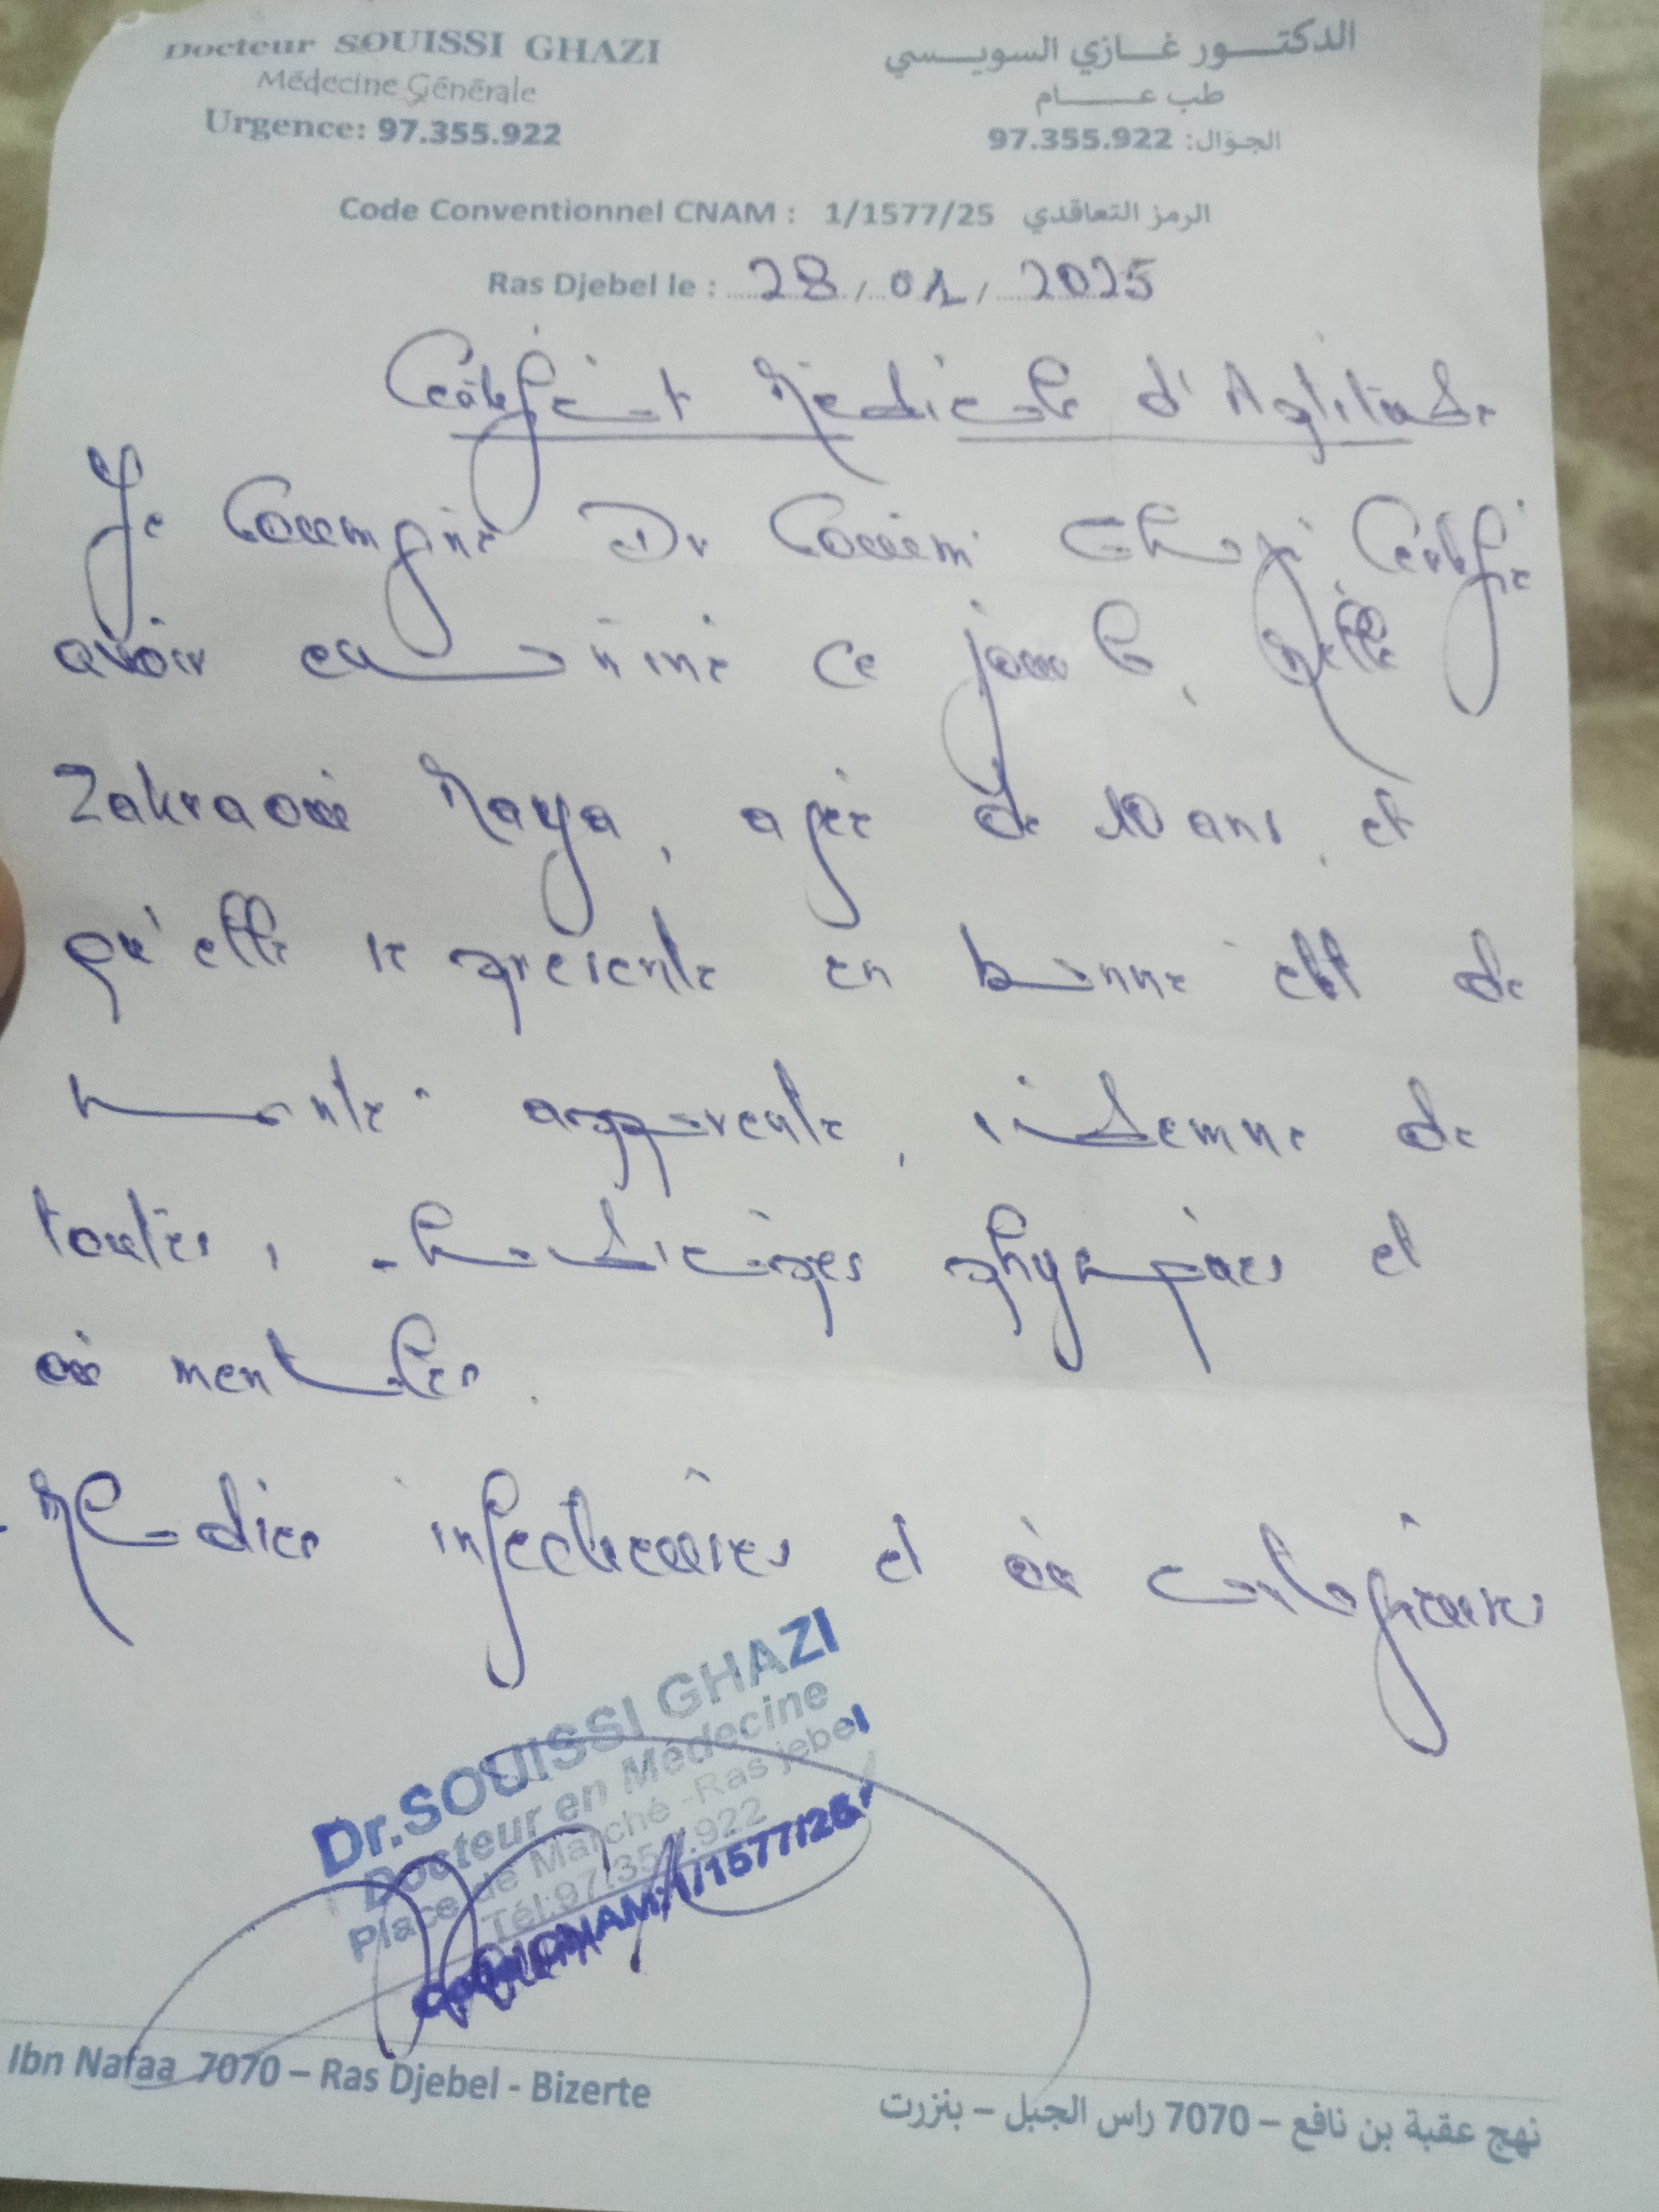 Docteur SOUISSI GHAZI
Médecine Générale
Urgence: 97.355.922
الدكتور غازي السويسي
طب عام
الجوال: 97.355.922
Code Conventionnel CNAM : 1/1577/25 الرمز التعاقدي
Ras Djebel le : 28/01/2025
Certificat Médicale d'Aptitude
Je soussigné Dr Souissi Ghazi Certifie
avoir examiné ce jour la, Melle
Zakraoui Maya, agée de 10 ans, et
qu'elle se présente en bonne état de
santé apparente, indemne de
toutes, handicapes physiques et
ou mentales.
- Maladies infectieuses et ou contagieuses
Dr.SOUISSI GHAZI
Docteur en Médecine
Place de Marché -Ras jebel
Tél:97.355.922
CNAM:1/1577/25
Ibn Nafaa 7070 – Ras Djebel - Bizerte
نهج عقبة بن نافع – 7070 راس الجبل – بنزرت